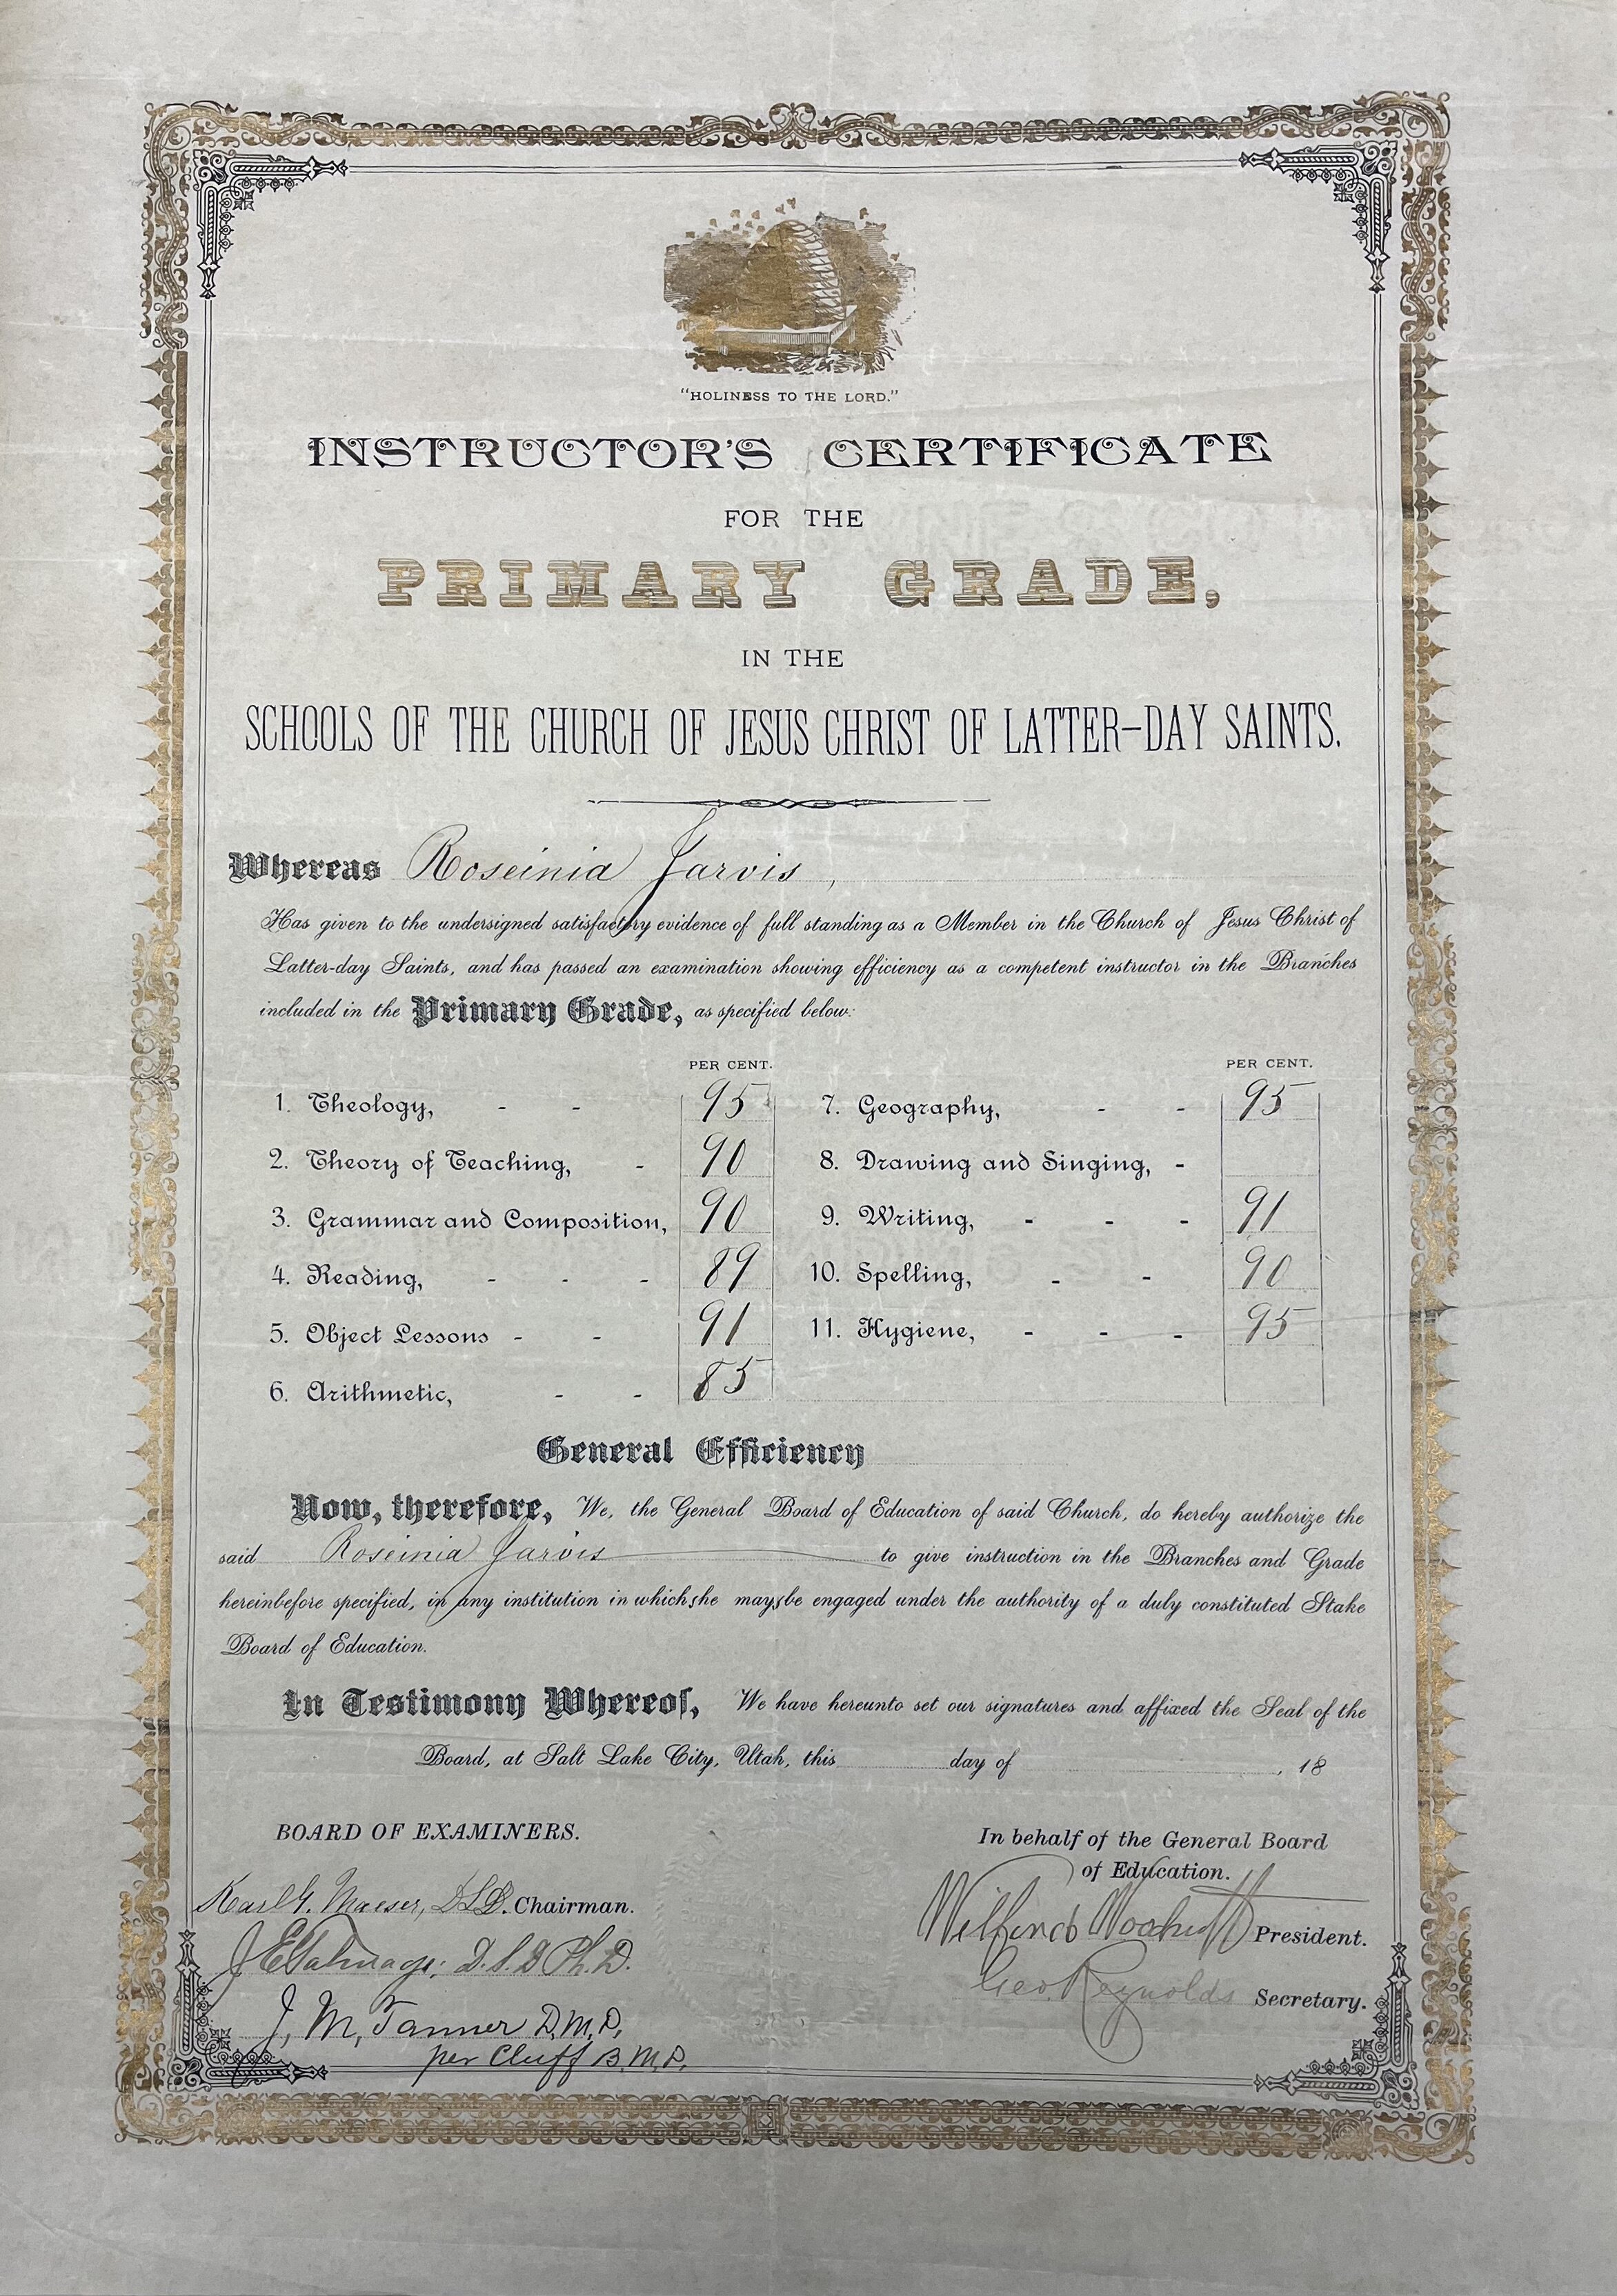 "HOLINESS TO THE LORD."
INSTRUCTOR'S CERTIFICATE
FOR THE
PRIMARY GRADE,
IN THE
SCHOOLS OF THE CHURCH OF JESUS CHRIST OF LATTER-DAY SAINTS.
Whereas Roseinia Jarvis,
Has given to the undersigned satisfactory evidence of full standing as a Member in the Church of Jesus Christ of
Latter-day Saints, and has passed an examination showing efficiency as a competent instructor in the Branches
included in the Primary Grade, as specified below:
PER CENT.
1. Theology, - - 95
2. Theory of Teaching, - 90
3. Grammar and Composition, 90
4. Reading, - - - 89
5. Object Lessons - - 91
6. Arithmetic, - - 85
PER CENT.
7. Geography, - - 95
8. Drawing and Singing, -
9. Writing, - - - 91
10. Spelling, - - 90
11. Hygiene, - - - 95
General Efficiency
Now, therefore, We, the General Board of Education of said Church, do hereby authorize the
said Roseinia Jarvis to give instruction in the Branches and Grade
hereinbefore specified, in any institution in which she may be engaged under the authority of a duly constituted Stake
Board of Education.
In Testimony Whereof, We have hereunto set our signatures and affixed the Seal of the
Board, at Salt Lake City, Utah, this day of , 18
BOARD OF EXAMINERS.
Karl G. Maeser, D.L.D. Chairman.
J E Talmage; D.S.D Ph.D.
J. M. Tanner D.M.D.
per Cluff B.M.D.
In behalf of the General Board
of Education.
Wilford Woodruff President.
Geo. Reynolds Secretary.